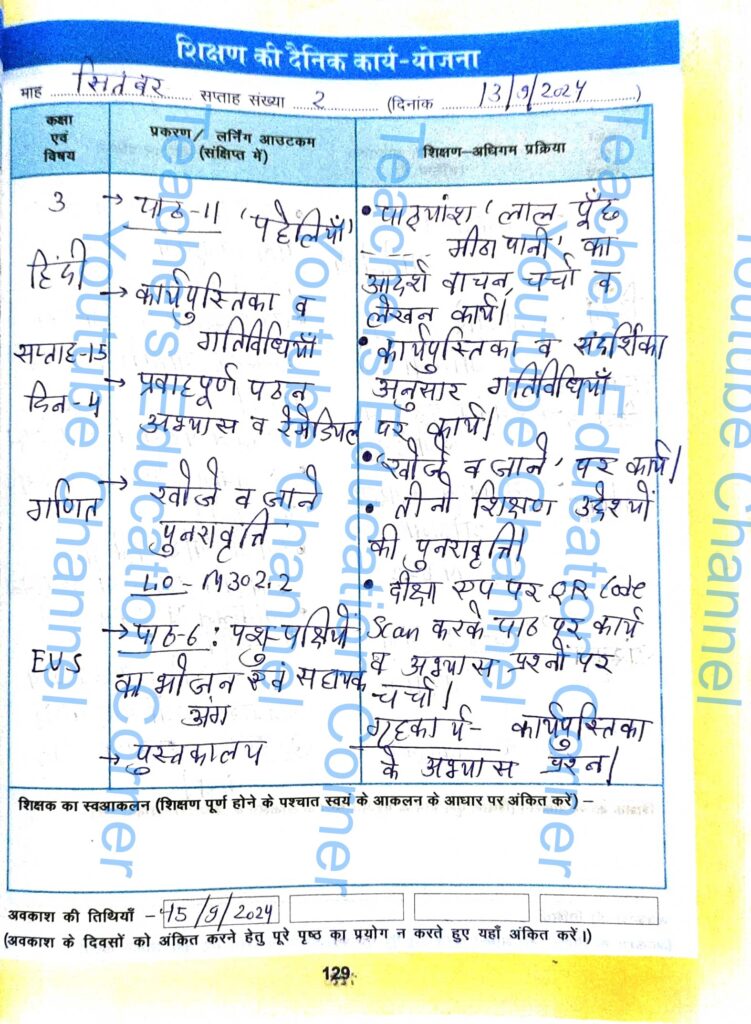 शिक्षण की दैनिक कार्य-योजना
माह सितंबर सप्ताह संख्या 2 (दिनांक 13/9/2024)
कक्षा एवं विषय
प्रकरण/ लर्निंग आउटकम (संक्षिप्त में)
शिक्षण-अधिगम प्रक्रिया
3
हिंदी
सप्ताह-15
दिन-4
गणित
EVS
→ पाठ-11 'पहेलियाँ'
→ कार्यपुस्तिका व
गतिविधियाँ
→ प्रवाहपूर्ण पठन
अभ्यास व रेमेडियल
→ खोजे व जाने
पुनरावृत्ति
LO-M302.2
→ पाठ-6: पशु-पक्षियों
का भोजन एवं सहायक
अंग
→ पुस्तकालय
• पाठ्यांश 'लाल पूँछ
---- मीठा पानी' का
आदर्श वाचन, चर्चा व
लेखन कार्य।
• कार्यपुस्तिका व संदर्शिका
अनुसार गतिविधियाँ
पर कार्य।
• 'खोजे व जाने' पर कार्य।
• तीनो शिक्षण उद्देश्यों
की पुनरावृत्ति।
• दीक्षा एप पर QR Code
Scan करके पाठ पर कार्य
व अभ्यास प्रश्नों पर
चर्चा।
गृहकार्य- कार्यपुस्तिका
के अभ्यास प्रश्न।
शिक्षक का स्वआकलन (शिक्षण पूर्ण होने के पश्चात स्वयं के आकलन के आधार पर अंकित करें) –
अवकाश की तिथियाँ – 15/9/2024
(अवकाश के दिवसों को अंकित करने हेतु पूरे पृष्ठ का प्रयोग न करते हुए यहाँ अंकित करें।)
129
Teachers Education Corner
Youtube Channel
Teachers Education Corner
Youtube Channel
Teachers Education Corner
Youtube Channel